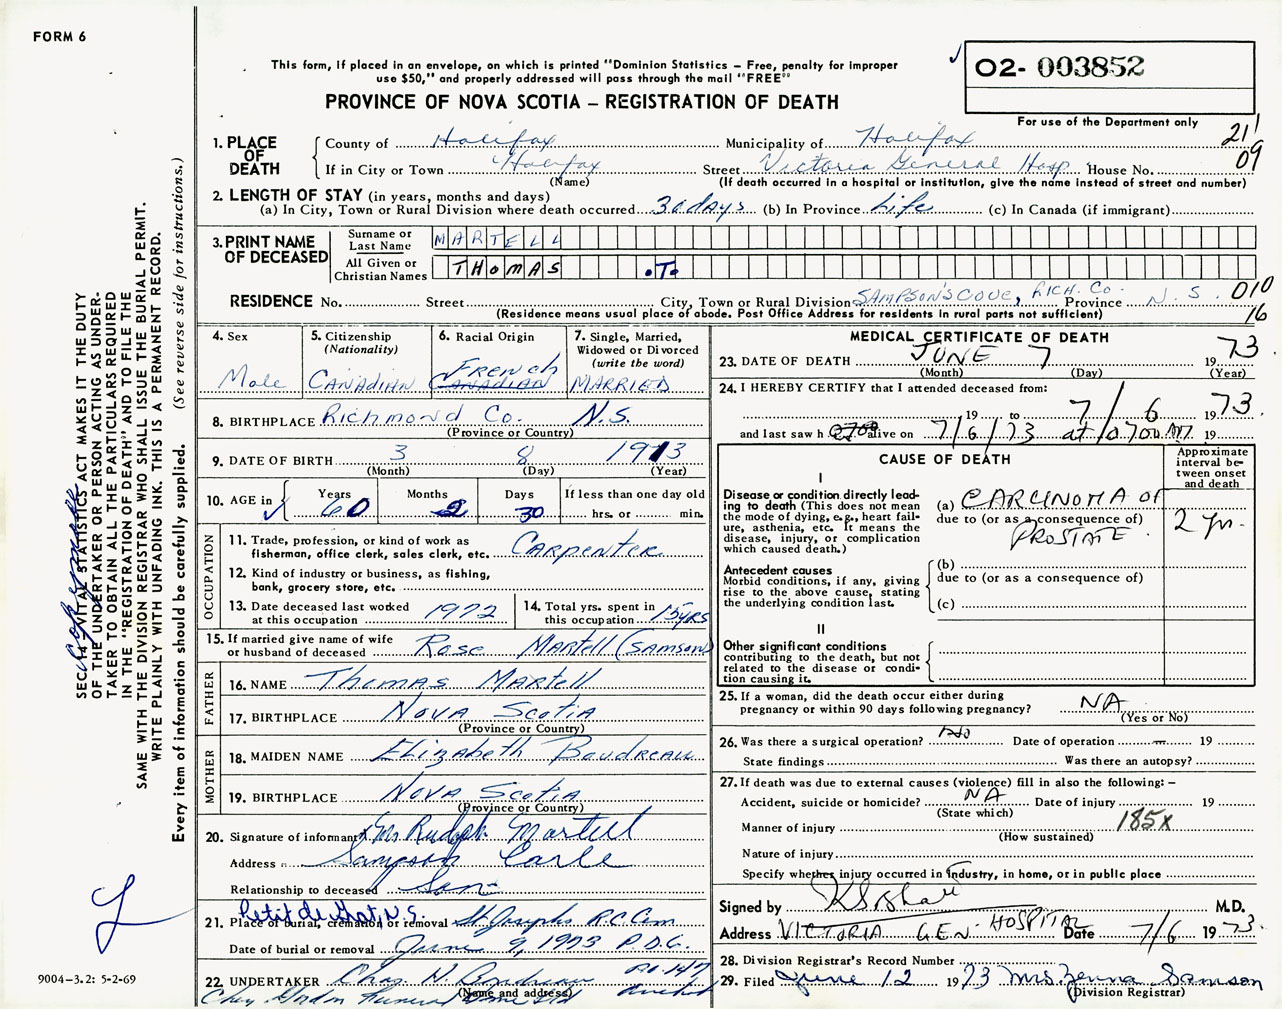 FORM 6
This form, if placed in an envelope, on which is printed "Dominion Statistics – Free, penalty for improper
use $50," and properly addressed will pass through the mail "FREE"
PROVINCE OF NOVA SCOTIA – REGISTRATION OF DEATH
02- 003852
For use of the Department only
21
09
1. PLACE OF DEATH
County of Halifax Municipality of Halifax
If in City or Town Halifax Street Victoria General Hosp. House No.
(Name) (If death occurred in a hospital or institution, give the name instead of street and number)
2. LENGTH OF STAY (in years, months and days)
(a) In City, Town or Rural Division where death occurred 30 days (b) In Province Life (c) In Canada (if immigrant)
3. PRINT NAME OF DECEASED
Surname or Last Name MARTELL
All Given or Christian Names THOMAS .T.
RESIDENCE No. Street City, Town or Rural Division SAMPSON'S COVE, RICH. CO. Province N.S. 010
(Residence means usual place of abode. Post Office Address for residents in rural parts not sufficient) 16
4. Sex Male
5. Citizenship (Nationality) CANADIAN
6. Racial Origin French CANADIAN
7. Single, Married, Widowed or Divorced (write the word) MARRIED
8. BIRTHPLACE Richmond Co. N.S.
(Province or Country)
9. DATE OF BIRTH 3 8 1913
(Month) (Day) (Year)
10. AGE in Years 60 Months 2 Days 30 If less than one day old hrs. or min.
OCCUPATION
11. Trade, profession, or kind of work as fisherman, office clerk, sales clerk, etc. CARPENTER
12. Kind of industry or business, as fishing, bank, grocery store, etc.
13. Date deceased last worked at this occupation 1972
14. Total yrs. spent in this occupation 15 yrs
15. If married give name of wife or husband of deceased Rose Martell (Samson)
FATHER
16. NAME Thomas Martell
17. BIRTHPLACE Nova Scotia
(Province or Country)
MOTHER
18. MAIDEN NAME Elizabeth Boudreau
19. BIRTHPLACE Nova Scotia
(Province or Country)
20. Signature of informant Mr Rudolph Martell
Address Sampson
Relationship to deceased Son
Petit de Grat, N.S.
21. Place of burial, cremation or removal St. Josephs R.C. Cem
Date of burial or removal June 9, 1973 P.D.G.
22. UNDERTAKER Chas. N. Boudreau no. 147
(Name and address) Funeral Home Ltd
MEDICAL CERTIFICATE OF DEATH
23. DATE OF DEATH JUNE 7 1973
(Month) (Day) (Year)
24. I HEREBY CERTIFY that I attended deceased from:
19 to 7/6 1973.
and last saw h alive on 7/6/73 at 0700 AM. 19
CAUSE OF DEATH
Approximate interval between onset and death
I
Disease or condition directly leading to death (This does not mean the mode of dying, e.g., heart failure, asthenia, etc. It means the disease, injury, or complication which caused death.)
(a) CARCINOMA OF
due to (or as a consequence of)
PROSTATE. 2 yr.
Antecedent causes
Morbid conditions, if any, giving rise to the above cause, stating the underlying condition last.
(b)
due to (or as a consequence of)
(c)
II
Other significant conditions
contributing to the death, but not related to the disease or condition causing it.
25. If a woman, did the death occur either during pregnancy or within 90 days following pregnancy? NA
(Yes or No)
26. Was there a surgical operation? No Date of operation — 19
State findings Was there an autopsy?
27. If death was due to external causes (violence) fill in also the following: –
Accident, suicide or homicide? NA Date of injury 19
(State which)
Manner of injury 185X
(How sustained)
Nature of injury
Specify whether injury occurred in industry, in home, or in public place
Signed by M.D.
Address VICTORIA GEN. HOSPITAL Date 7/6 1973.
28. Division Registrar's Record Number
29. Filed June 12 1973 Mrs. Samson
(Division Registrar)
SEC. 14 – VITAL STATISTICS ACT MAKES IT THE DUTY
OF THE UNDERTAKER OR PERSON ACTING AS UNDER-
TAKER TO OBTAIN ALL THE PARTICULARS REQUIRED
IN THE "REGISTRATION OF DEATH" AND TO FILE THE
SAME WITH THE DIVISION REGISTRAR WHO SHALL ISSUE THE BURIAL PERMIT.
WRITE PLAINLY WITH UNFADING INK. THIS IS A PERMANENT RECORD.
Every item of information should be carefully supplied. (See reverse side for instructions.)
9004–3.2: 5-2-69